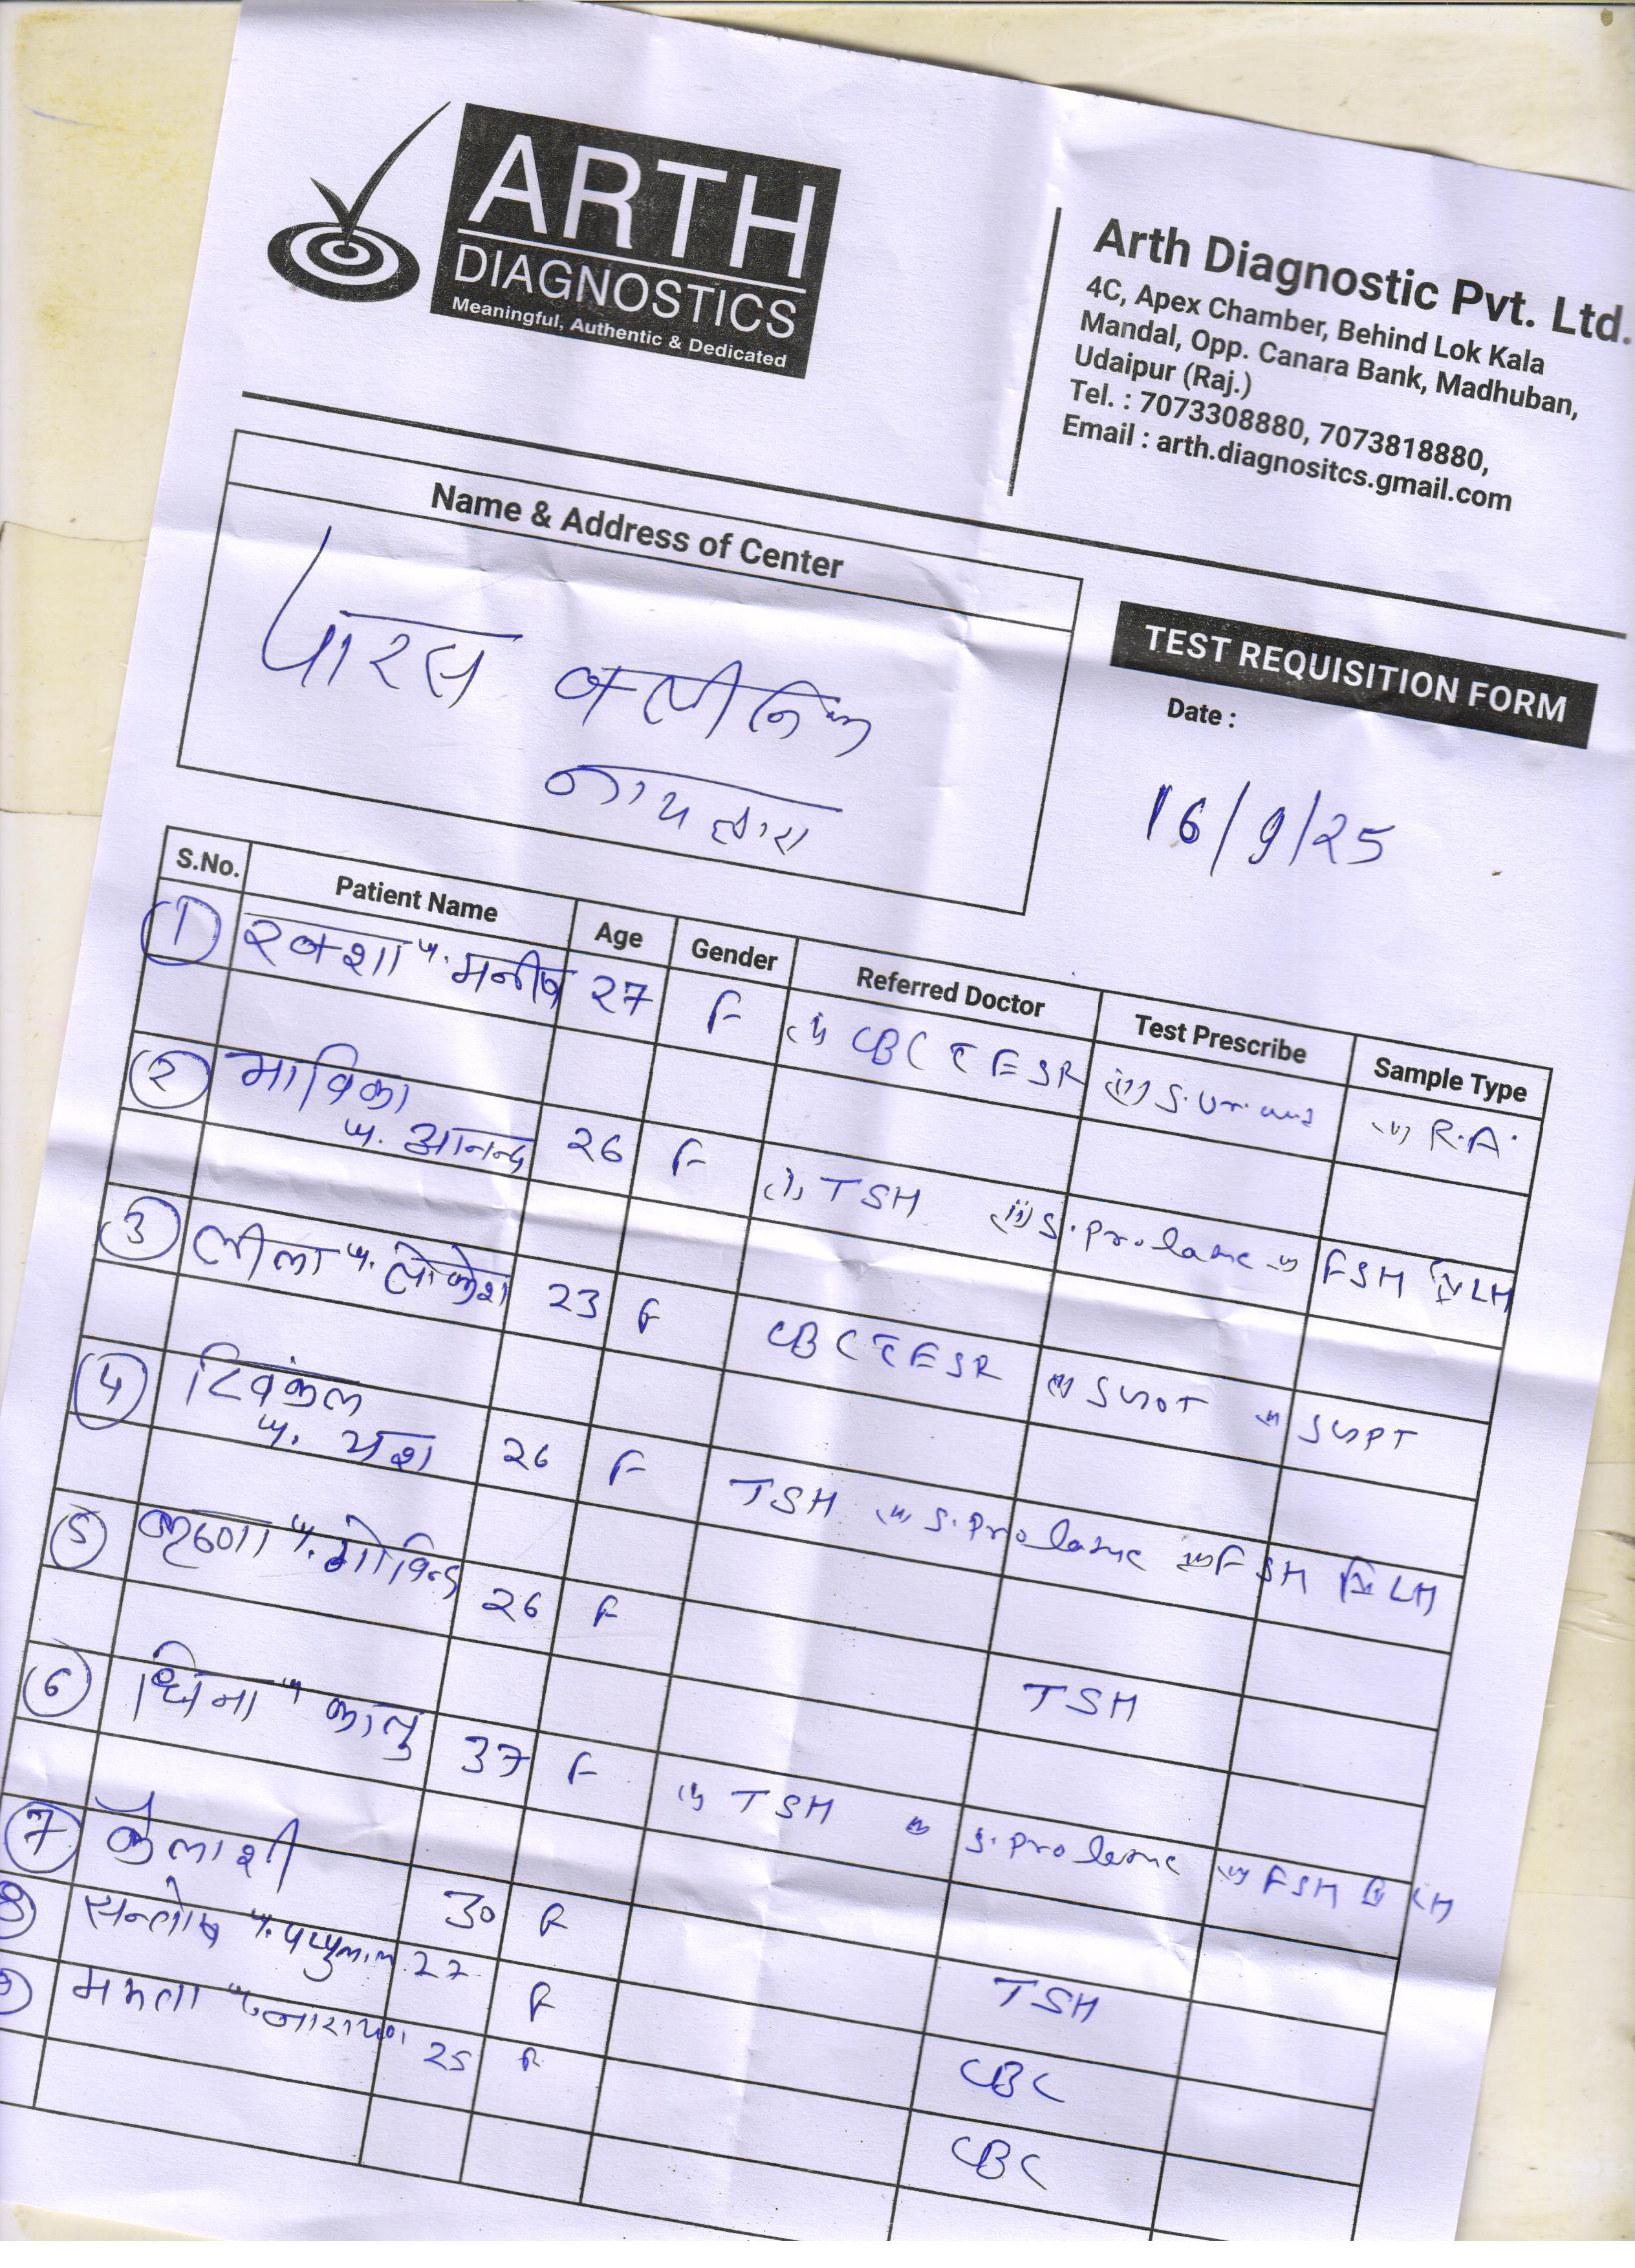 ARTH
DIAGNOSTICS
Meaningful, Authentic & Dedicated
Arth Diagnostic Pvt. Ltd.
4C, Apex Chamber, Behind Lok Kala
Mandal, Opp. Canara Bank, Madhuban,
Udaipur (Raj.)
Tel. : 7073308880, 7073818880,
Email : arth.diagnositcs.gmail.com
Name & Address of Center
पारस क्लीनिक
नाथद्वारा
TEST REQUISITION FORM
Date :
16/9/25
S.No. Patient Name Age Gender Referred Doctor Test Prescribe Sample Type
1 रक्शा w. मनीष 27 F (i) CBC ESR (ii) S. (iii) R.A.
2 माविका
w. आनन्द 26 F (i) TSH (ii) S. Prolanc (iii) FSH (iv) LH
3 लीला w. लोकेश 23 F CBC ESR (ii) SGOT (iii) SGPT
4 टिवंकल
w. यश 26 F TSH (ii) S. Prolanc (iii) FSH (iv) LH
5 कृष्णा w. गोविन्द 26 F TSH
6 कालु 37 F (i) TSH (ii) S. Prolanc (iii) FSH (iv) LH
7 कैलाशी 30 F TSH
8 सन्तोष w. 22 F CBC
9 ममता w. नारायण 25 F CBC